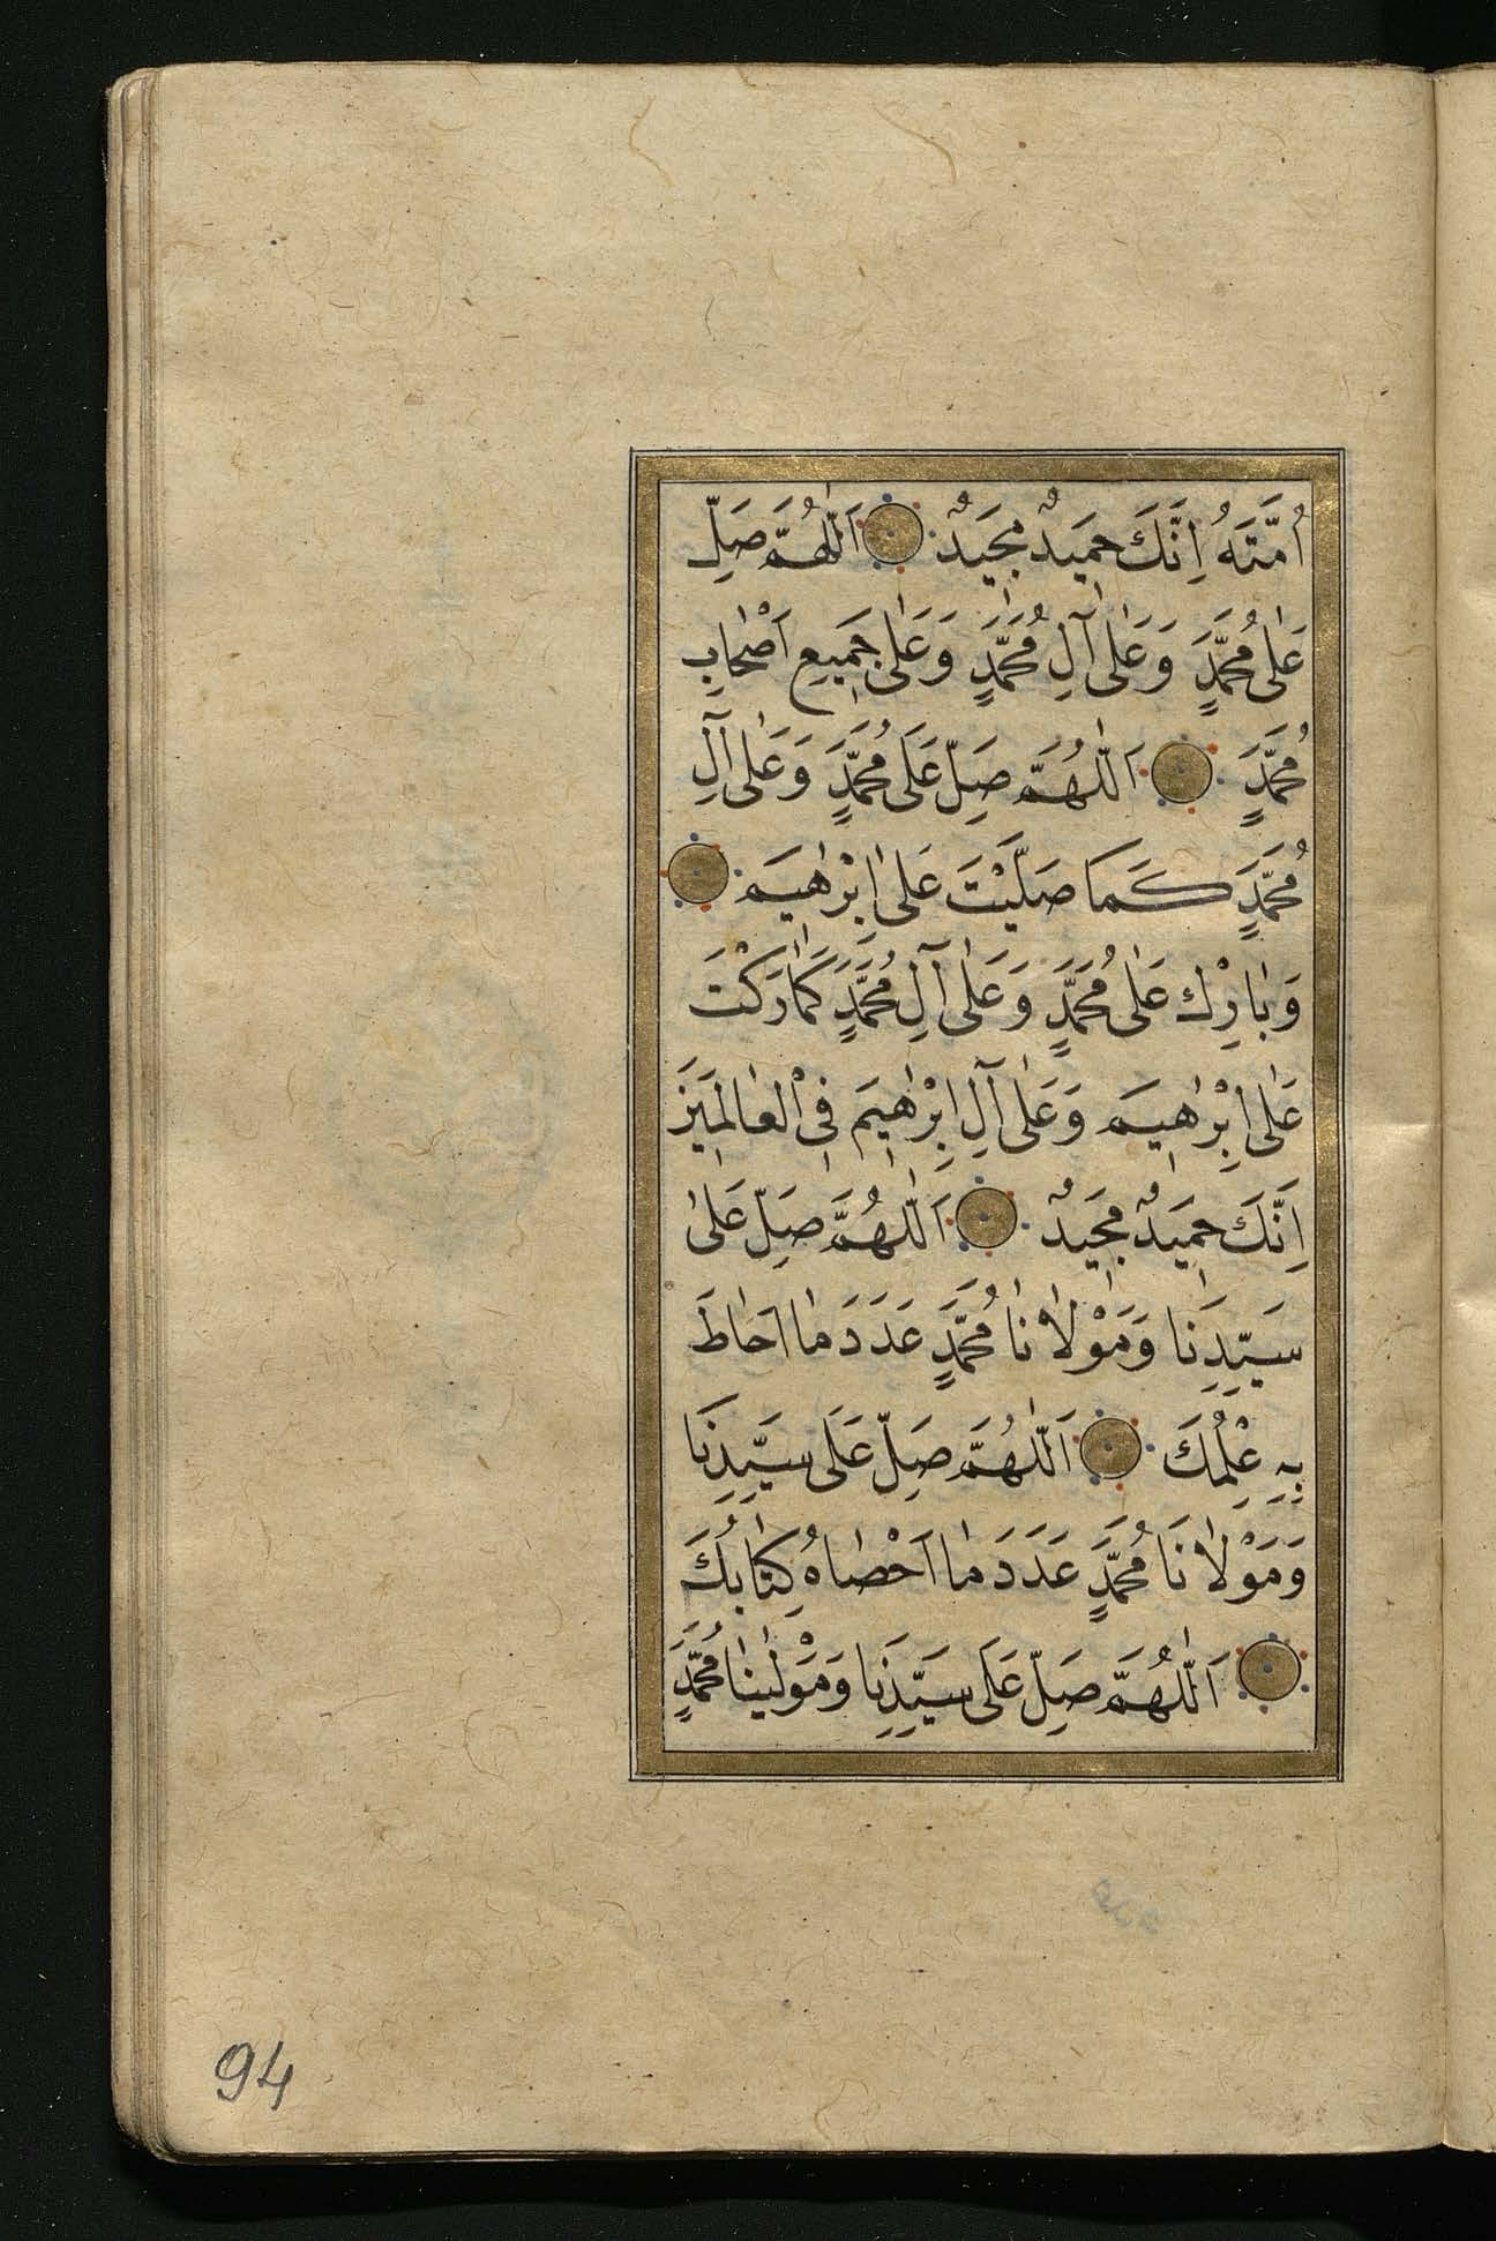 اُمَّتَهُ اِنَّكَ حَمِيدٌ مَجِيدٌ اَللّٰهُمَّ صَلِّ
عَلٰى مُحَمَّدٍ وَعَلٰى آلِ مُحَمَّدٍ وَعَلٰى جَمِيعِ اَصْحَابِ
مُحَمَّدٍ اَللّٰهُمَّ صَلِّ عَلَى مُحَمَّدٍ وَعَلٰى آلِ
مُحَمَّدٍ كَمَا صَلَّيْتَ عَلٰى اِبْرٰهِيمَ
وَبَارِكْ عَلٰى مُحَمَّدٍ وَعَلٰى آلِ مُحَمَّدٍ كَمَا رَكْتَ
عَلٰى اِبْرٰهِيمَ وَعَلٰى آلِ اِبْرٰهِيمَ فِى الْعَالَمِينَ
اِنَّكَ حَمِيدٌ مَجِيدٌ اَللّٰهُمَّ صَلِّ عَلٰى
سَيِّدِنَا وَمَوْلَانَا مُحَمَّدٍ عَدَدَ مَا اَحَاطَ
بِهِ عِلْمُكَ اَللّٰهُمَّ صَلِّ عَلَى سَيِّدِنَا
وَمَوْلَانَا مُحَمَّدٍ عَدَدَ مَا اَحْصَاهُ كِتَابُكَ
اَللّٰهُمَّ صَلِّ عَلَى سَيِّدِنَا وَمَوْلٰينَا مُحَمَّدٍ
94